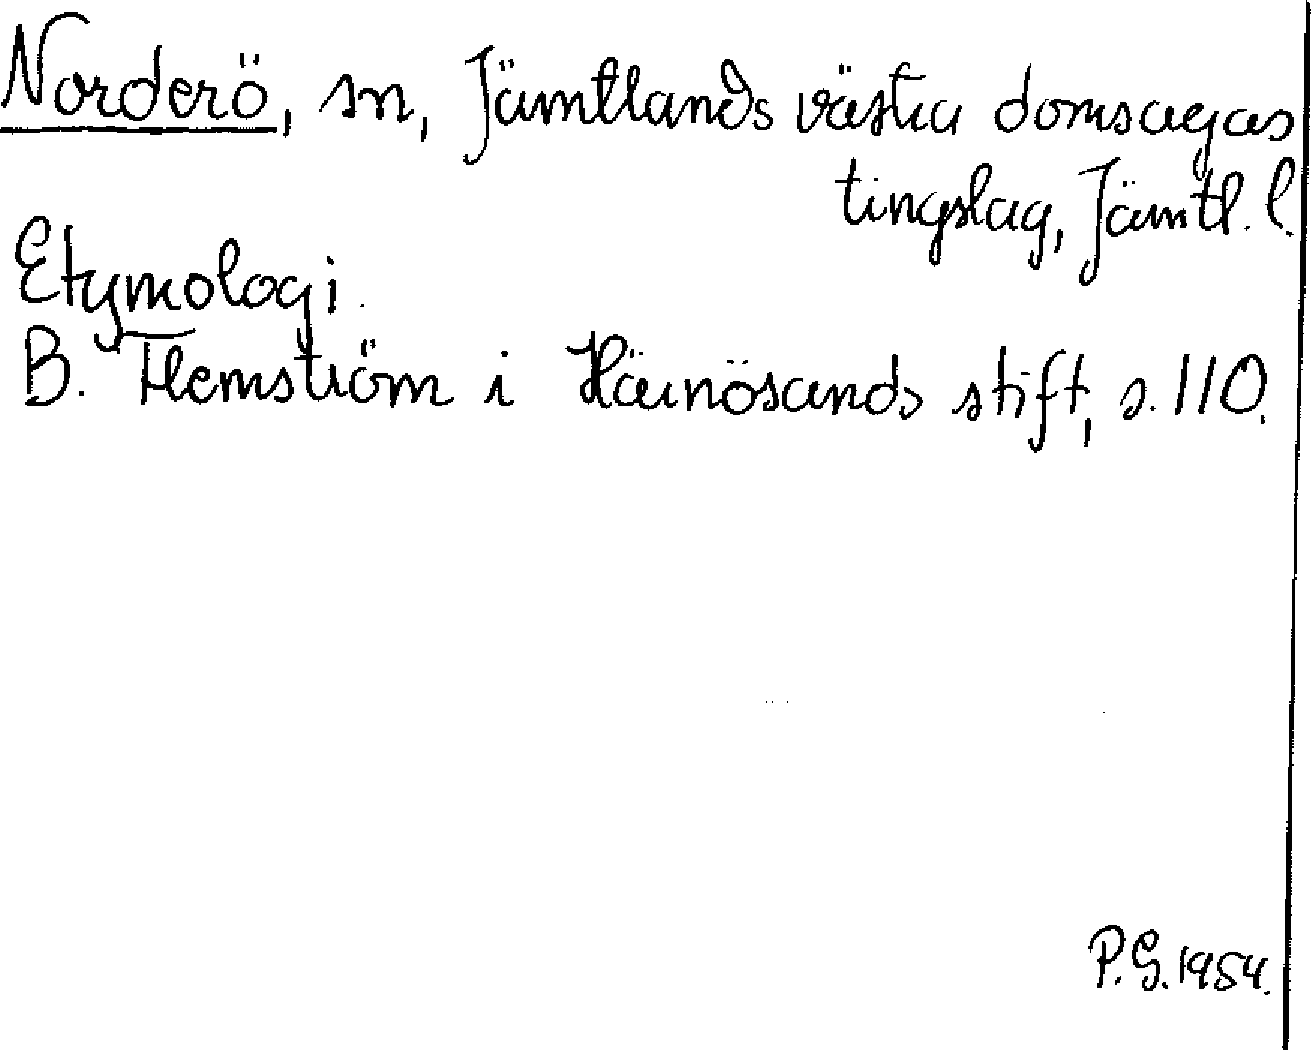 Norderö, sn, Jämtlands västra domsagas
tingslag, Jämtl. l.
Etymologi.
B. Flemström i Härnösands stift, s. 110.
P.G. 1954.